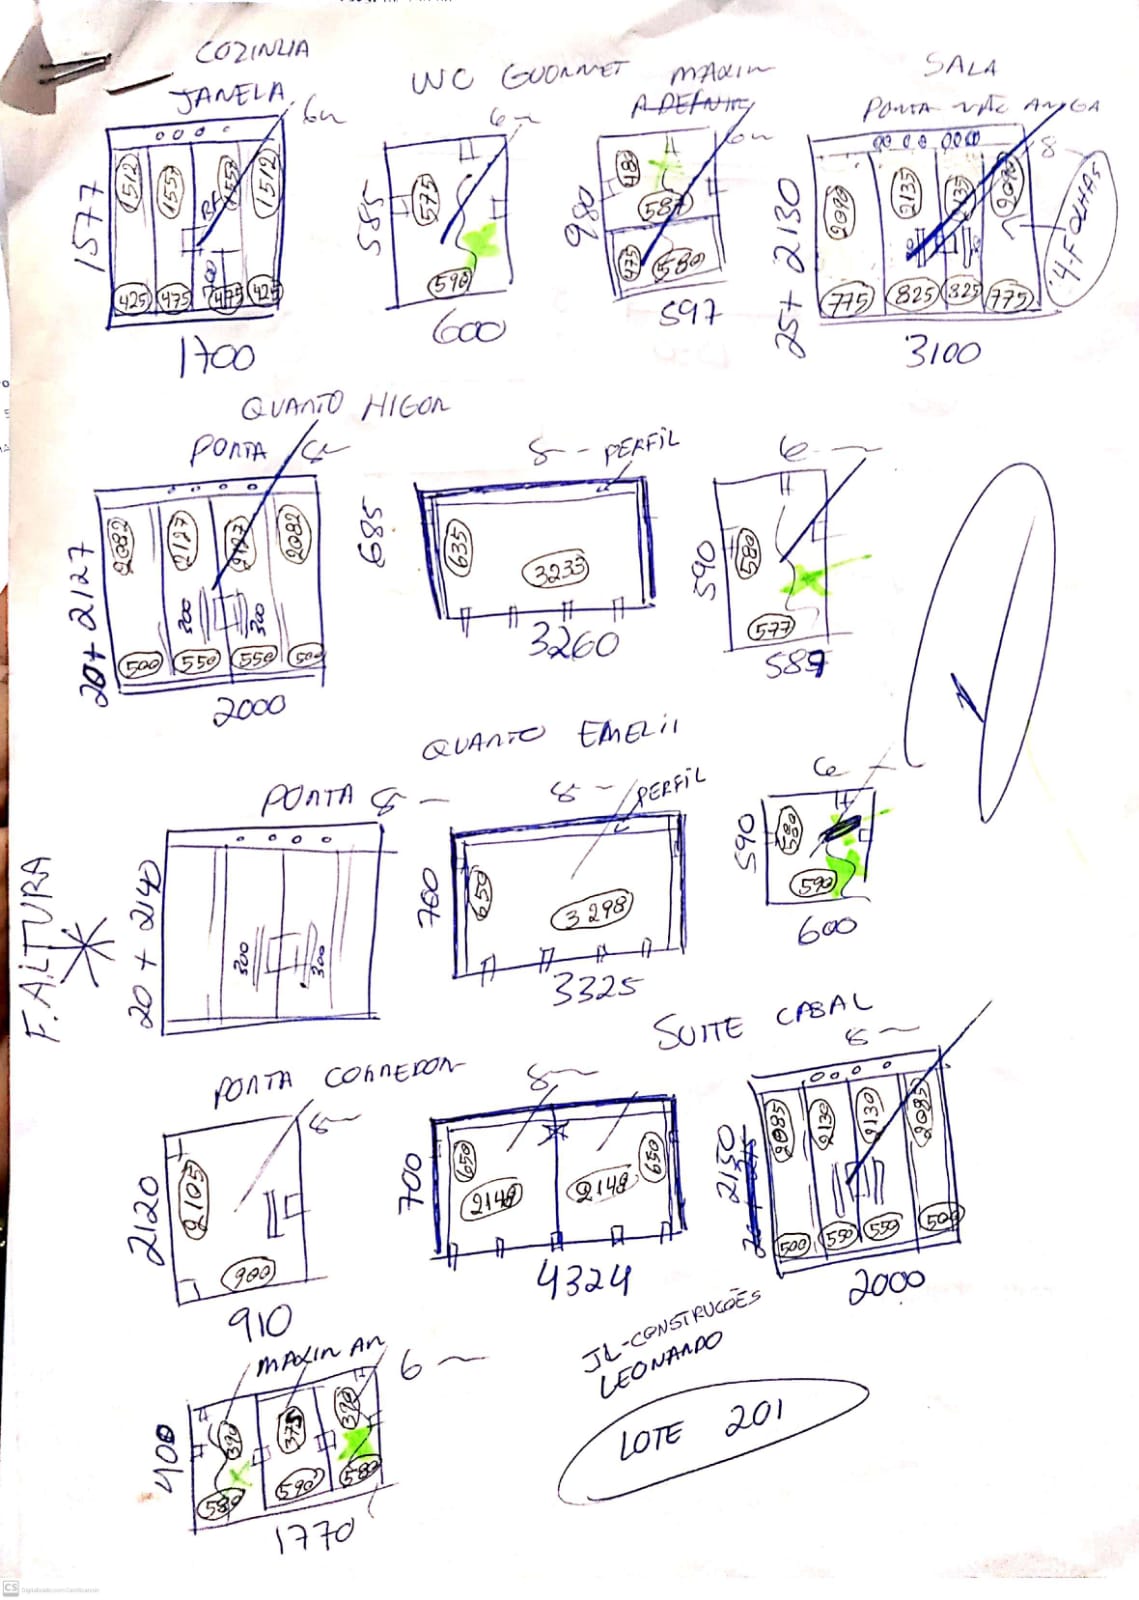 COZINHA
JANELA
6m
1512
1557
1557
1512
BF
1577
425
475
700
475
425
1700
WC GOURMET
6m
585
575
590
600
MAXIM
A DEFINIR
6m
980
483
587
475
580
597
SALA
PORTA NÃO AMIGA
8
4 FOLHAS
25+ 2130
2090
2135
2135
2090
775
825
825
775
3100
QUARTO HIGOR
PORTA 8
20+ 2127
2082
2127
2127
2082
300
300
500
550
550
500
2000
8 - PERFIL
685
635
3233
3260
6
590
580
577
589
QUARTO EMELII
PORTA 8
F. ALTURA
20 + 2140
300
300
8 - PERFIL
760
659
3298
3325
6
590
580
590
600
PORTA CORREDOR
8
2120
2105
900
910
8
700
650
2148
2148
650
4324
SUITE CASAL
8
2130
2085
2130
2130
2085
500
550
550
500
2000
MAXIM AR
6
400
390
375
390
580
590
580
1770
JL-CONSTRUÇÕES
LEONARDO
LOTE 201
CS Digitalizado com CamScanner